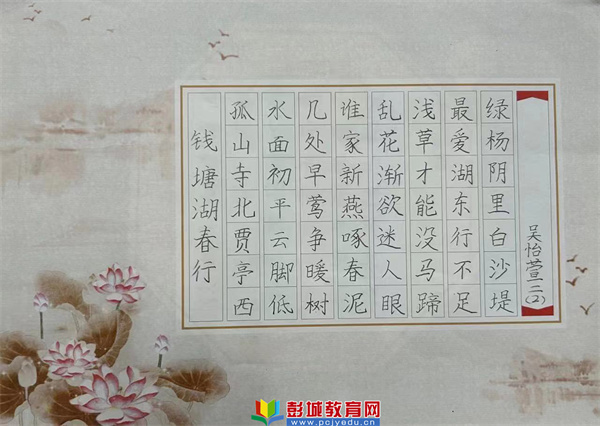 钱塘湖春行
孤山寺北贾亭西
水面初平云脚低
几处早莺争暖树
谁家新燕啄春泥
乱花渐欲迷人眼
浅草才能没马蹄
最爱湖东行不足
绿杨阴里白沙堤
吴怡萱二(2)
彭城教育网
www.pcjyedu.cn